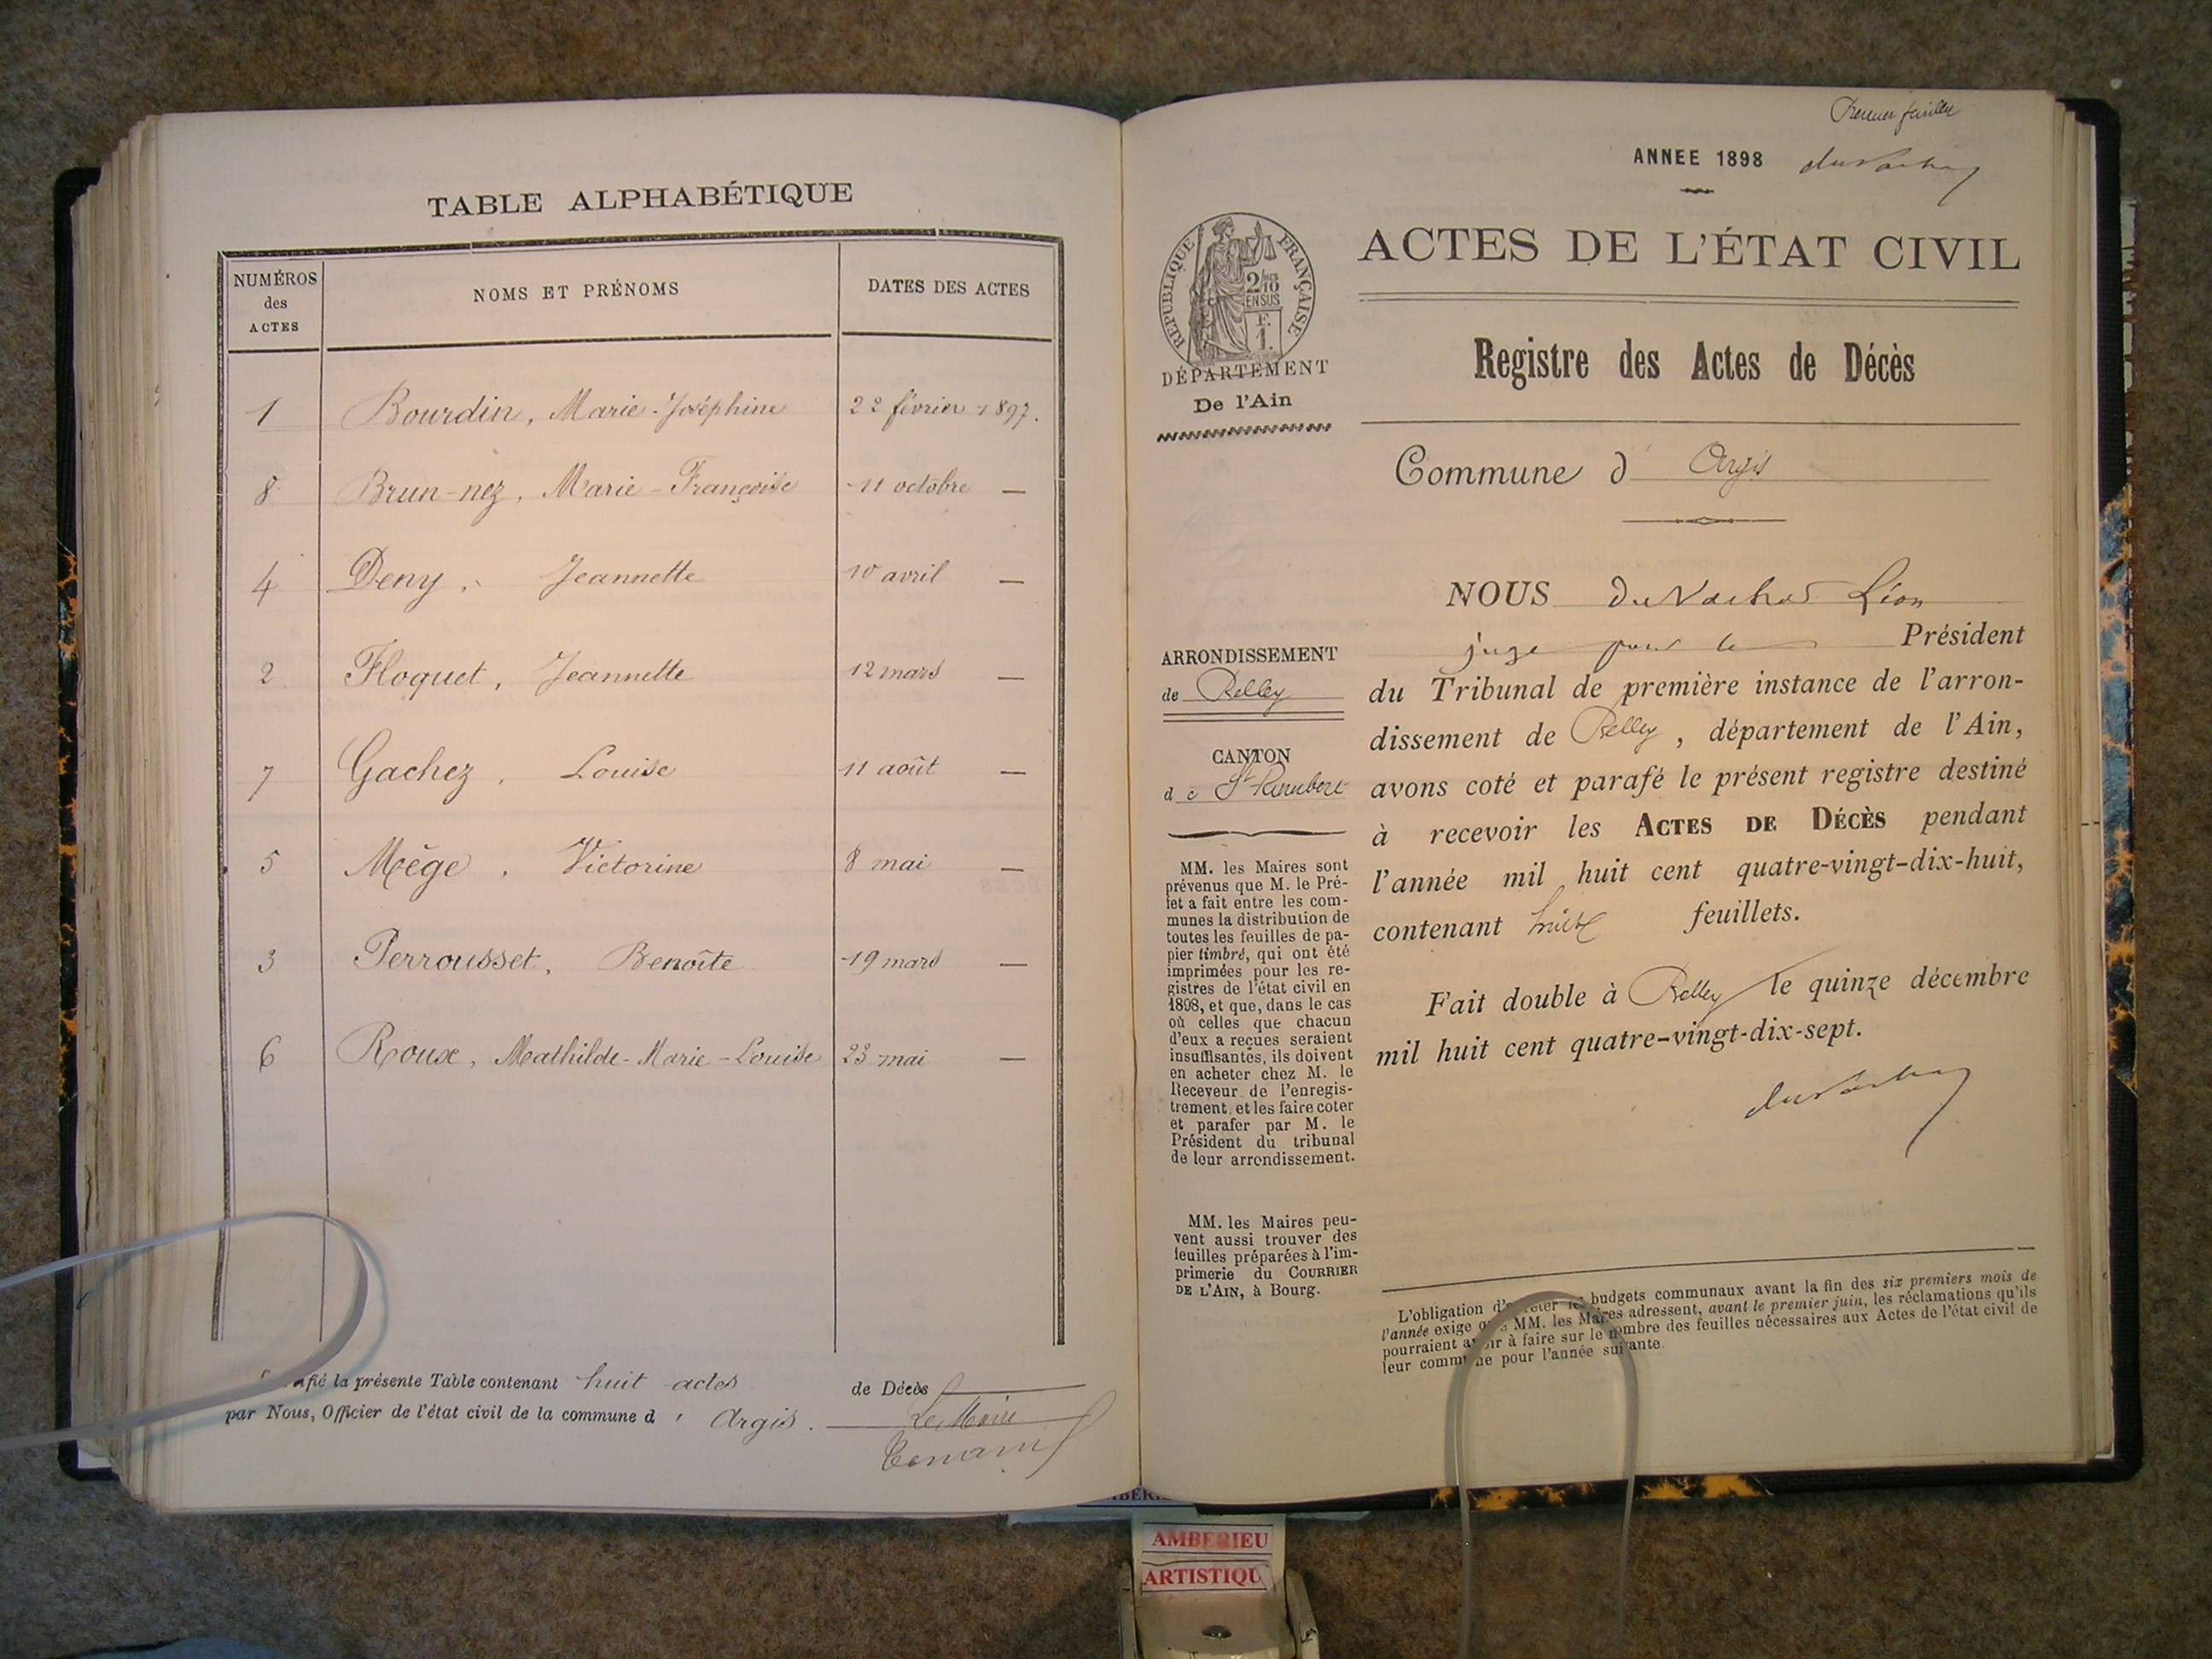 TABLE ALPHABÉTIQUE
NUMÉROS des ACTES
NOMS ET PRÉNOMS
DATES DES ACTES
1 Bourdin, Marie-Joséphine 22 février 1897.
8 Brun-nez, Marie-Françoise 11 octobre —
4 Deny, Jeannette 10 avril —
2 Floquet, Jeannette 12 mars —
7 Gachez, Louise 11 août —
5 Mège, Victorine 8 mai —
3 Perrousset, Benoîte 19 mars —
6 Roux, Mathilde-Marie-Louise 23 mai —
la présente Table contenant huit actes de Décès
par Nous, Officier de l'état civil de la commune d' Argis.
Le Maire
Premier feuillet
ANNEE 1898
RÉPUBLIQUE FRANÇAISE
2/10 EN SUS
F. 1.
DÉPARTEMENT
De l'Ain
ACTES DE L'ÉTAT CIVIL
Registre des Actes de Décès
Commune d' Argis
ARRONDISSEMENT
de Belley
CANTON
de St Rambert
MM. les Maires sont
prévenus que M. le Pré-
fet a fait entre les com-
munes la distribution de
toutes les feuilles de pa-
pier timbré, qui ont été
imprimées pour les re-
gistres de l'état civil en
1898, et que, dans le cas
où celles que chacun
d'eux a reçues seraient
insuffisantes, ils doivent
en acheter chez M. le
Receveur de l'enregis-
trement et les faire coter
et parafer par M. le
Président du tribunal
de leur arrondissement.
MM. les Maires peu-
vent aussi trouver des
feuilles préparées à l'im-
primerie du COURRIER
DE L'AIN, à Bourg.
NOUS Léon
juge pour le Président
du Tribunal de première instance de l'arron-
dissement de Belley, département de l'Ain,
avons coté et parafé le présent registre destiné
à recevoir les ACTES DE DÉCÈS pendant
l'année mil huit cent quatre-vingt-dix-huit,
contenant huit feuillets.
Fait double à Belley le quinze décembre
mil huit cent quatre-vingt-dix-sept.
L'obligation d'arrêter les budgets communaux avant la fin des six premiers mois de
l'année exige que MM. les Maires adressent, avant le premier juin, les réclamations qu'ils
pourraient avoir à faire sur le nombre des feuilles nécessaires aux Actes de l'état civil de
leur commune pour l'année suivante.
AMBERIEU
ARTISTIQU